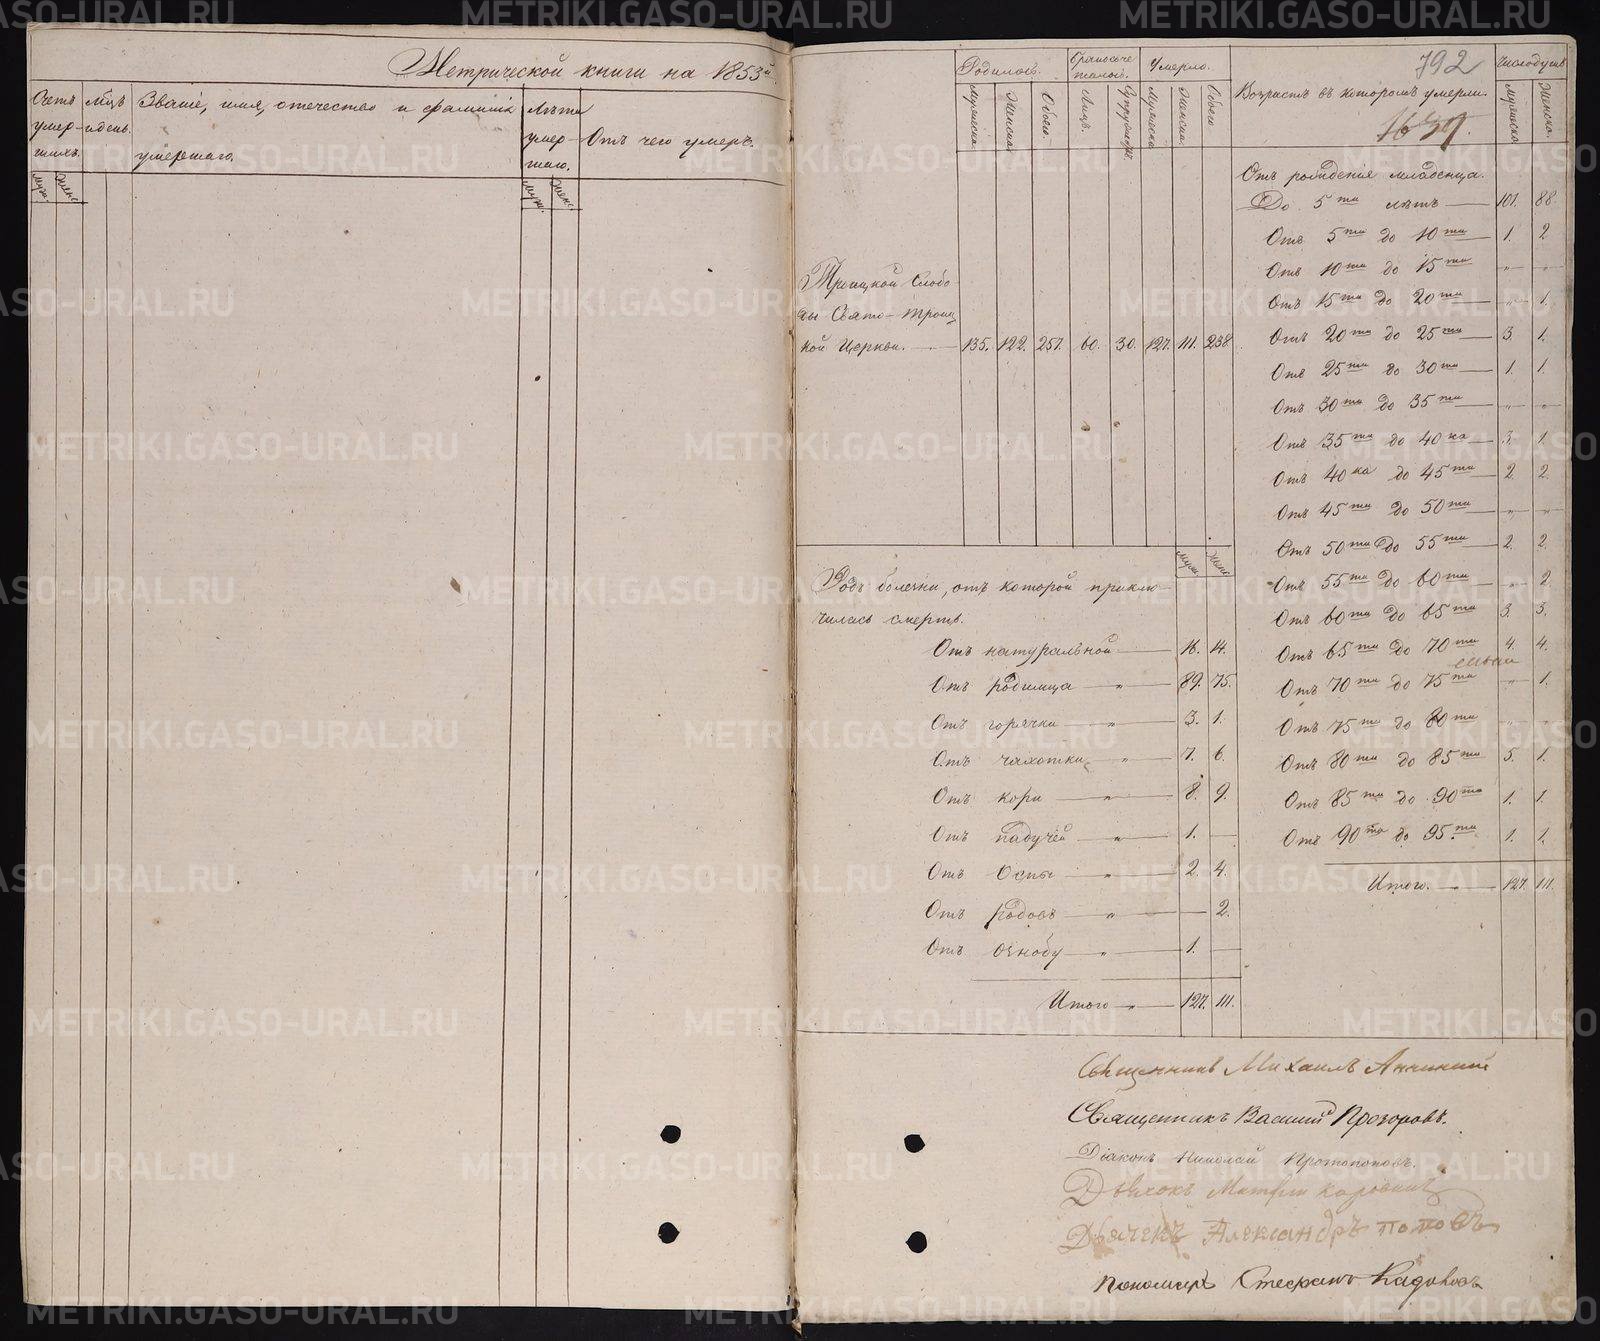 Метрической книги на 1853й
Счетъ умер-шихъ. Мцъ и день. Званіе, имя, отечество и фамилія умершаго. Лѣта умер-шаго. Отъ чего умеръ.
Муж. Женс. Муж. Женс.
792
Родилось. Бракосоче-талось. Умерло. Возрастъ въ которомъ умерли. Число душъ
Мужеска. Женска. Обоего. Лицъ. Супружествъ. Мужеска. Женска. Обоего Мужеска. Женска.
Троицкой Слобо-
ды Свято-Троиц
кой Церкви. — 135. 122. 257. 60. 30. 127. 111. 238.
Отъ рожденія младенца.
До 5ти лѣтъ — 101. 88.
Отъ 5ти до 10ти — 1. 2
Отъ 10ти до 15ти — „ — „
Отъ 15ти до 20ти — „ — 1.
Отъ 20ти до 25ти — 3. 1.
Отъ 25ти до 30ти — 1. 1.
Отъ 30ти до 35ти — „ — „
Отъ 35ти до 40ка — 3. 1.
Отъ 40ка до 45ти — 2. 2.
Отъ 45ти до 50ти — „ — „
Отъ 50ти до 55ти — 2. 2.
Отъ 55ти до 60ти — „ 2
Отъ 60ти до 65ти 3. 3.
Отъ 65ти до 70ти 4. 4.
Отъ 70ти до 75ти — „ — 1.
Отъ 75ти до 80ти „ „
Отъ 80ти до 85ти 5. 1.
Отъ 85ти до 90то 1. 1.
Отъ 90то до 95ти 1. 1.
Итого. — 127. 111.
Муж. Женс
Родъ болезни, отъ которой приклю-
чилась смерть.
Отъ натуральной — 16. 14.
Отъ родимца — „ — 89. 75.
Отъ горячки — „ — 3. 1.
Отъ чахотки — „ — 7. 6.
Отъ кори — „ — 8. 9.
Отъ падучей — „ — 1. —
Отъ Оспы — „ — 2. 4.
Отъ родовъ — „ — 2.
Отъ ознобу — „ — 1. —
Итого — „ — 127. 111.
Священникъ Михаилъ
Священникъ Василій Прозоровъ.
Діаконъ Николай Протопоповъ.
Дьячекъ Александръ Поповъ
Пономарь Стефанъ
METRIKI.GASO-URAL.RU